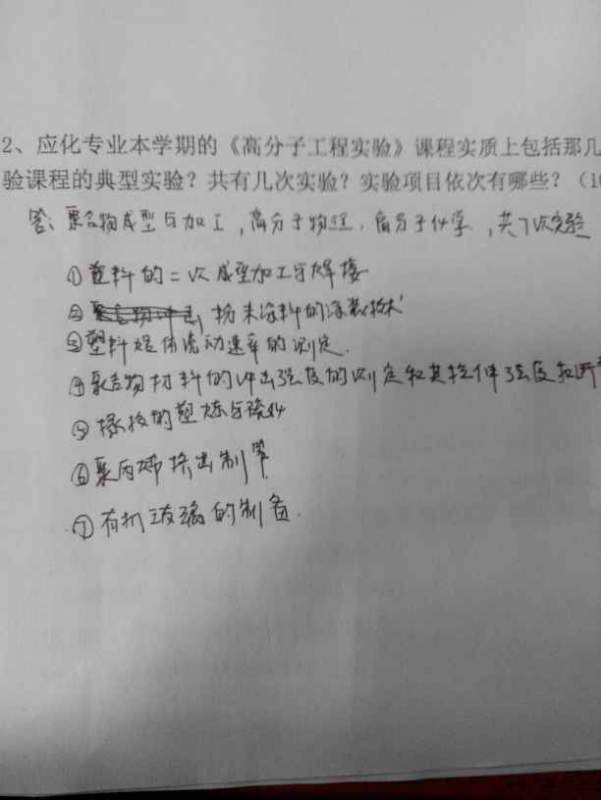 2、应化专业本学期的《高分子工程实验》课程实质上包括那几
验课程的典型实验？共有几次实验？实验项目依次有哪些？（1
答：聚合物成型与加工，高分子物理，高分子化学，共7次实验
①塑料的二次成型加工与焊接
②粉末涂料的涂装技术
③塑料熔体流动速率的测定.
④聚合物材料的冲击强度的测定和其拉伸强度和断
⑤橡胶的塑炼与混炼
⑥聚丙烯挤出制
⑦有机玻璃的制备.